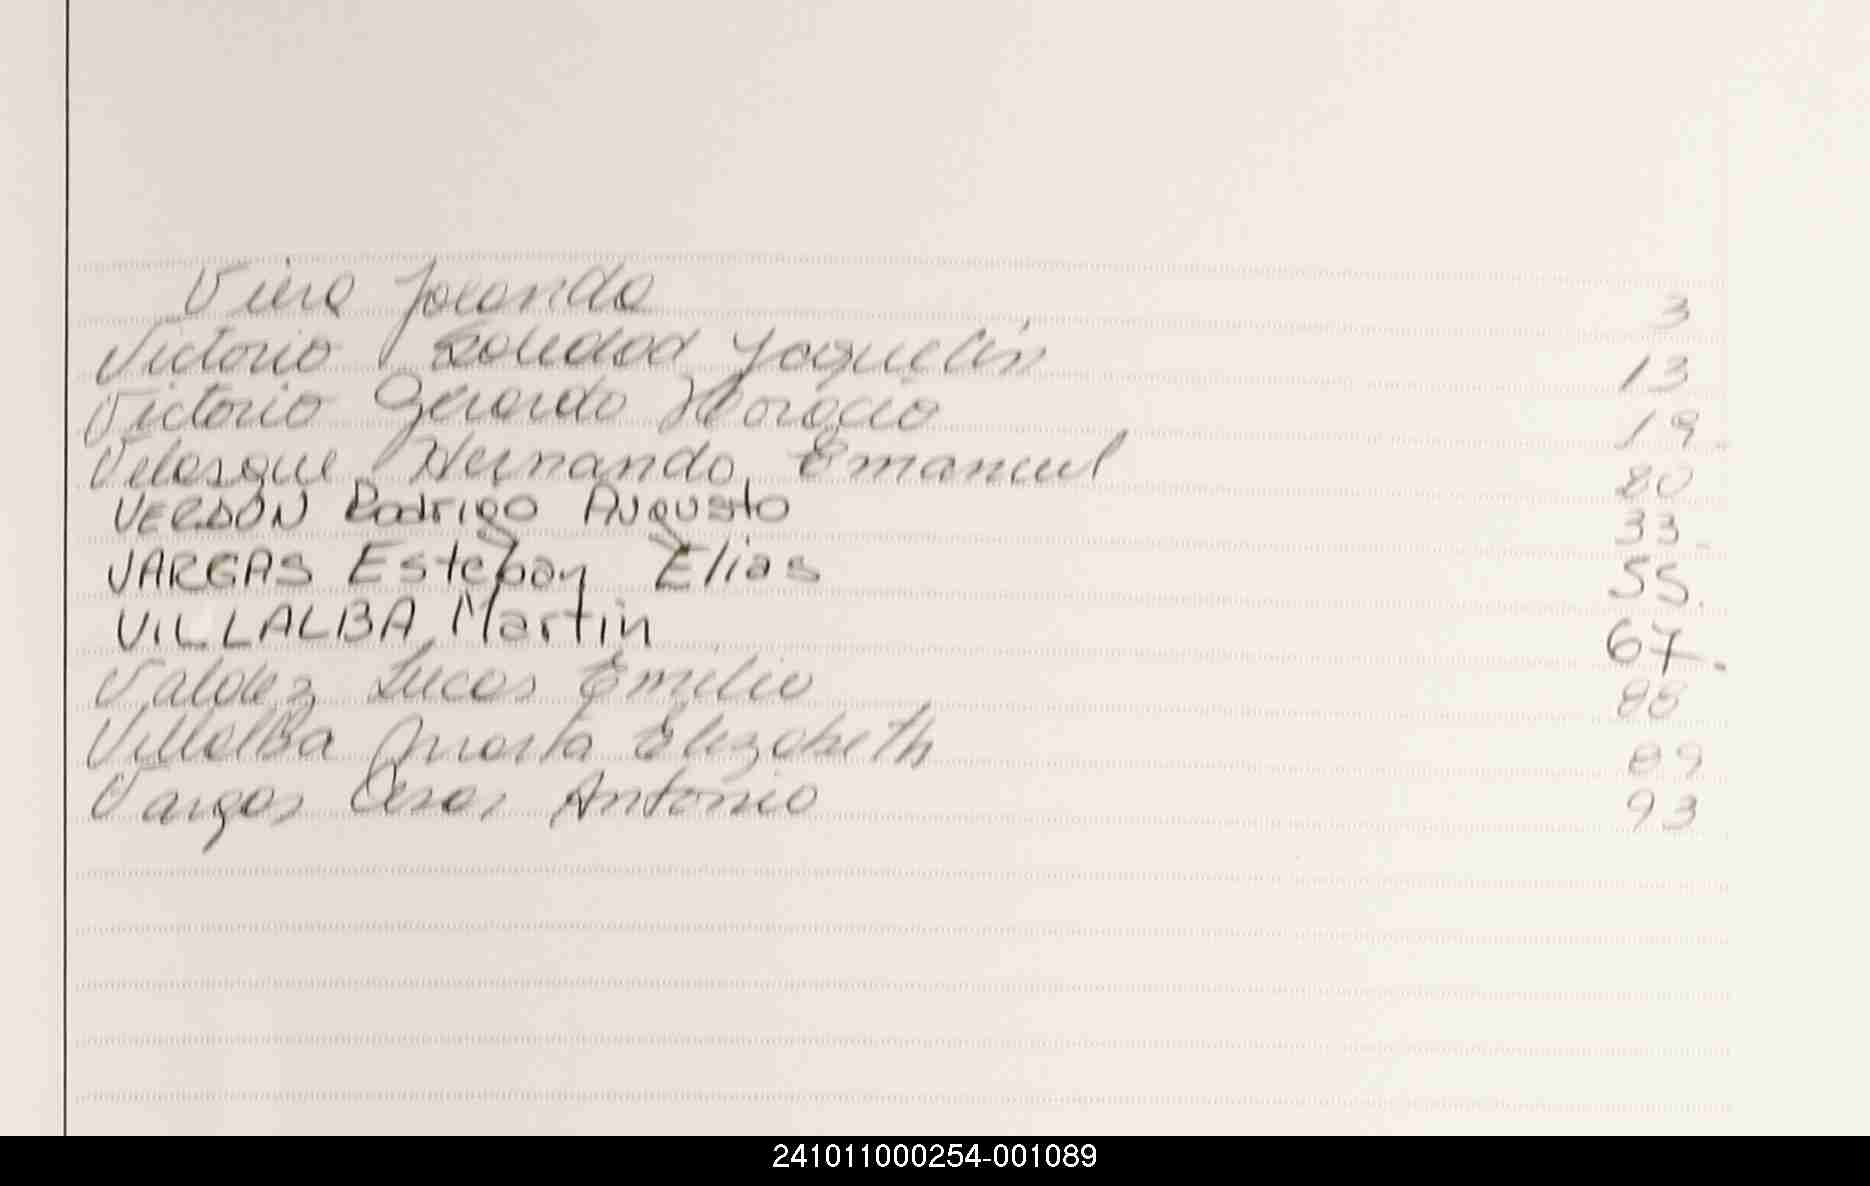 Viera Yolanda 3
Victorio Soledad Yaquelin 13
Victorio Gerardo Horacio 19
Velasque Hernando Emanuel 20
VERDÓN Rodrigo Augusto 33
VARGAS Esteban Elias 55
VILLALBA Martin 67
Valdez Lucas Emilio 88
Villalba Marta Elizabeth 89
Vargas Cesar Antonio 93
241011000254-001089